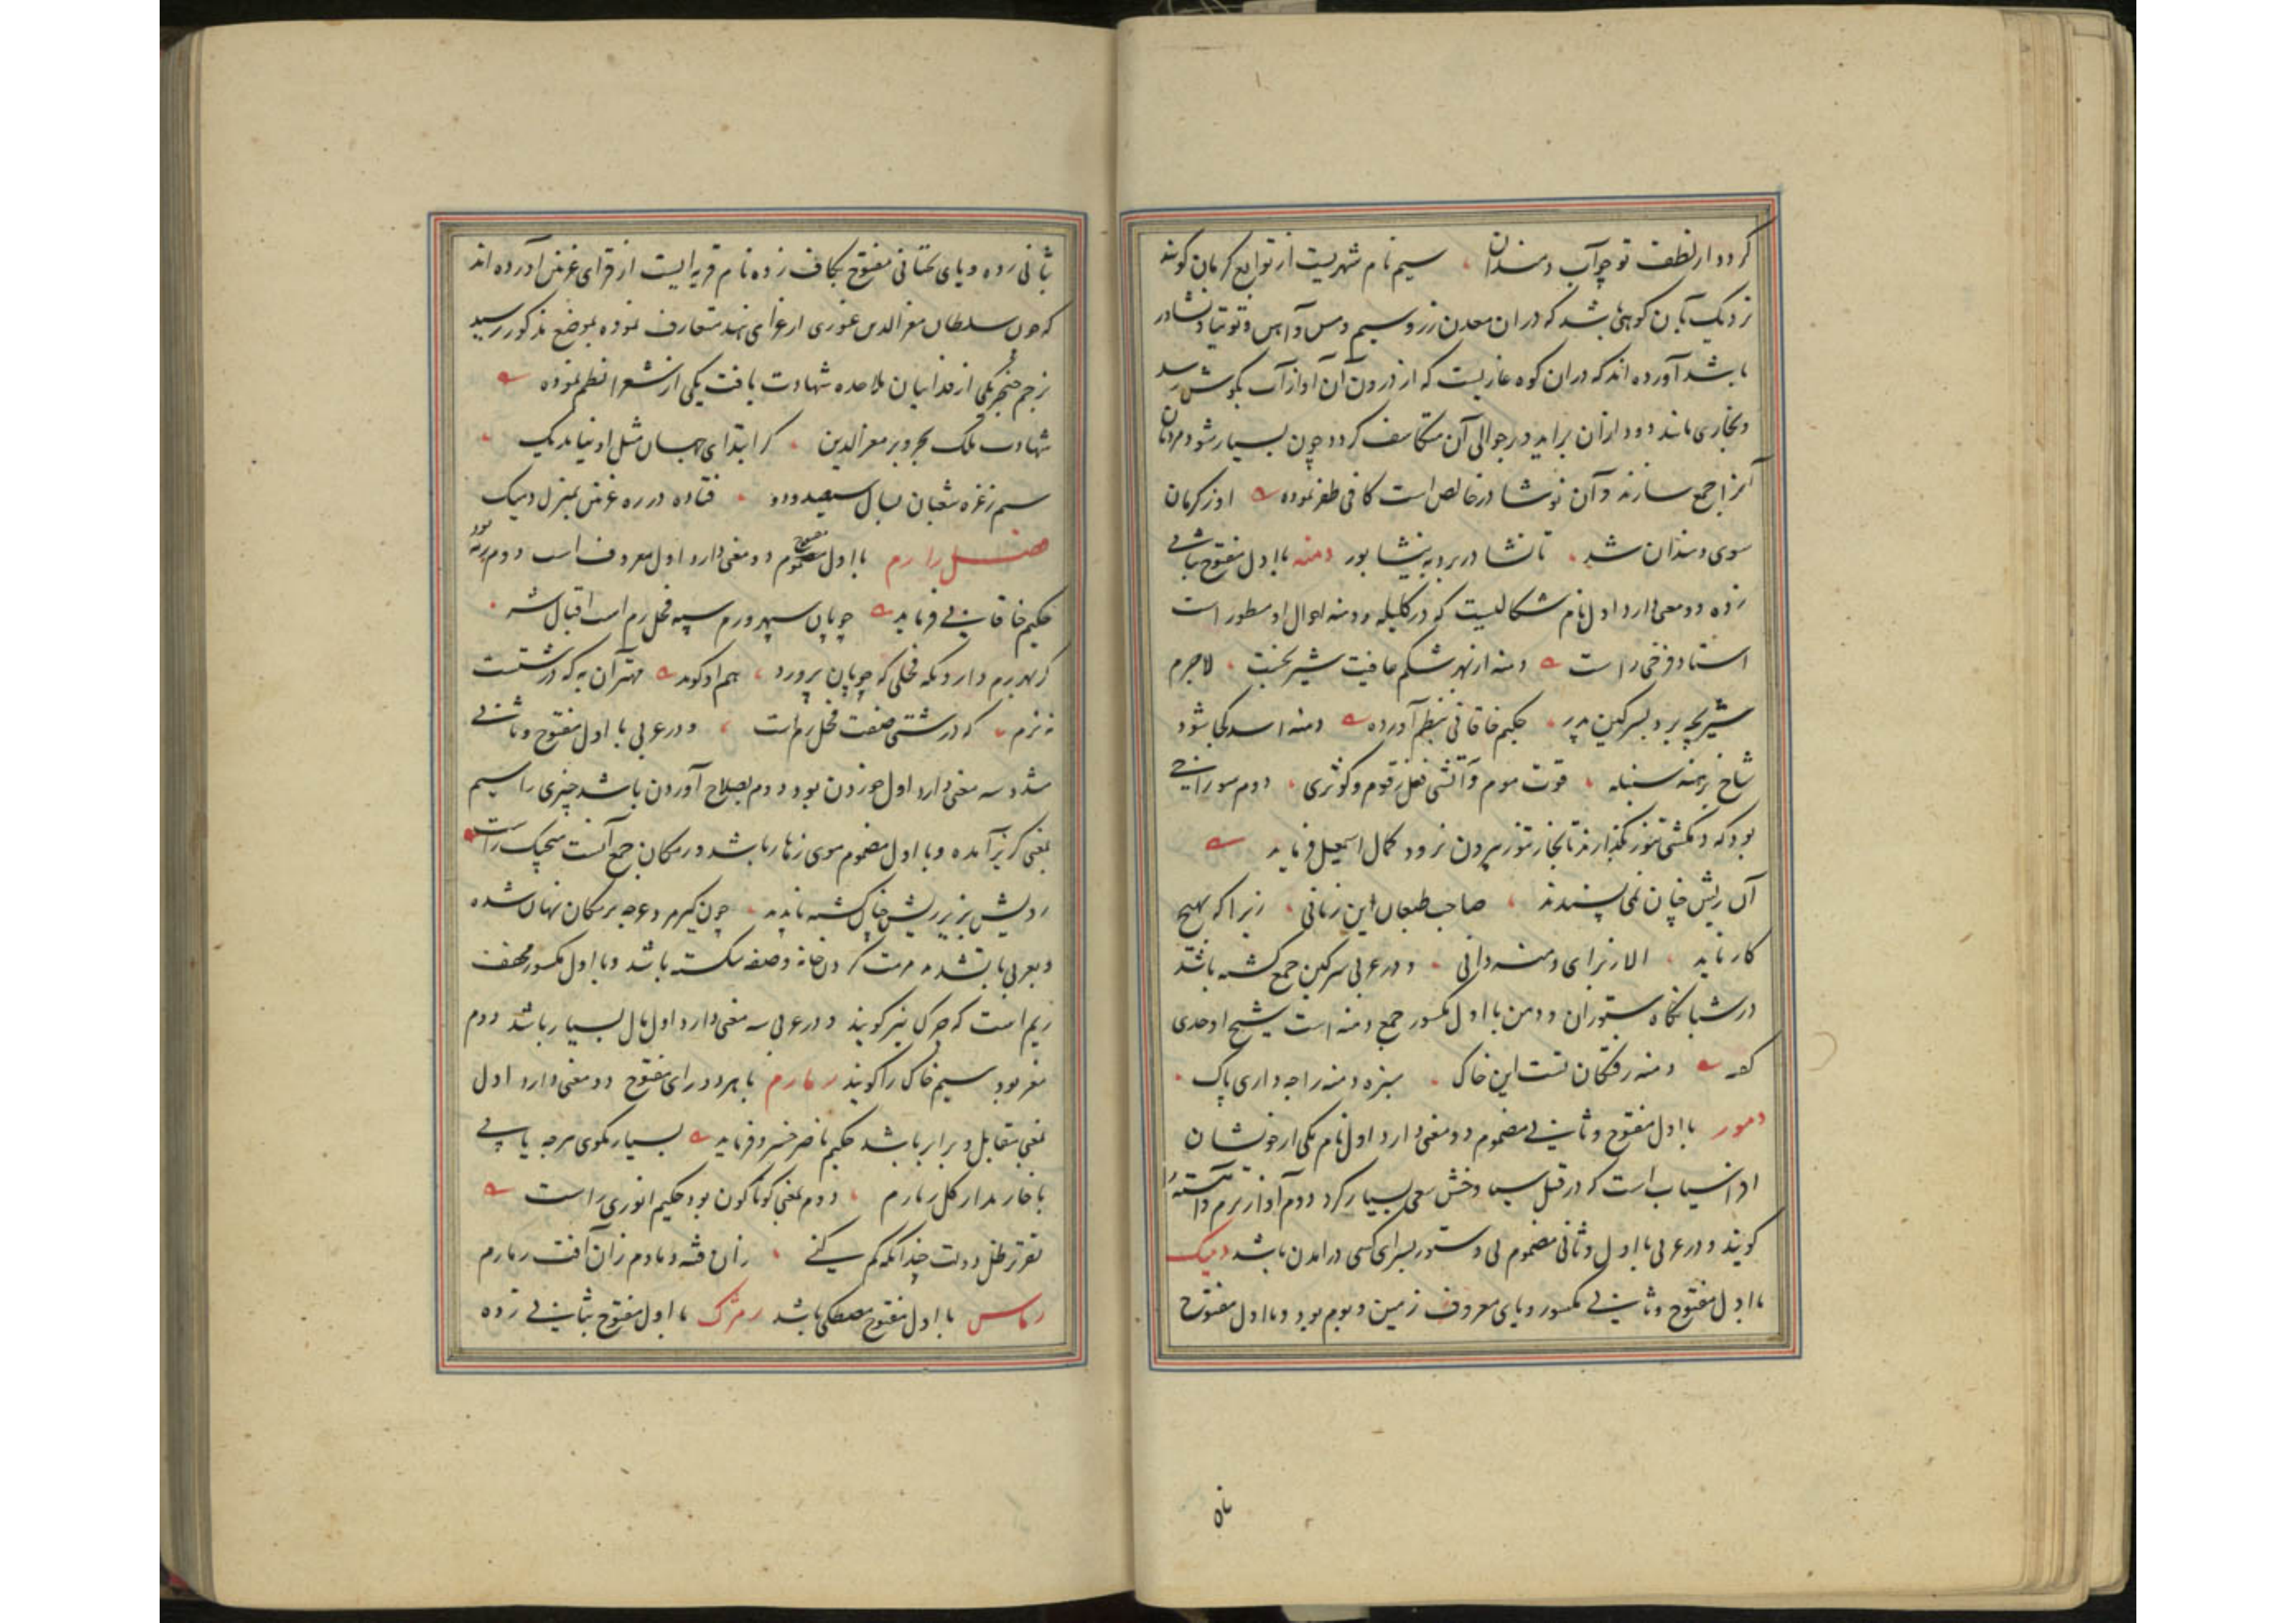 گردد از لطف تو چو آب دمندان سیم نام شهریست از توابع کرمان گویند
نزدیک بآن کوهی باشد که در ان معدن زر و سیم و مس و آهن و توتیا و نشادر
باشد آورده اند که دران کوه غاریست که از درون آن آواز آب بگوش رسد
و بخاری مانند دود ازان براید در حوالی آن متکاثف گردد چون بسیار شود مردمان
آنرا جمع سازند و آن نوشادر خالص است کافی ظفر نموده او ز کرمان
سوی دمندان شد تا نشادر برد به نیشابور دمنه با اول مفتوح بثانی
زده دو معنی دارد اول نام شکالیست که در کلیله و دمنه احوال او مسطور است
استاد فرخی راست دمنه از بهر شکم عاقبت شیر بخست لاجرم
شیر بچه برد بسرکین پدر حکیم خاقانی نظم آورده دمنه اسد کجا شود
شاخ بهمنه سنبله قوت موم و آتشی فعل زقوم و کوثری دوم سوراخی
بود که در مکشی تنور بگذارند تا بخار تنور بیرون نرود کمال اسمعیل فرماید
آن ریش چنان نمی پسندند صاحب طبعان این زمانی زیرا که بهیچ
کار ناید الا ز برای دمنه دانی و در عربی سرکین جمع کشته باشد
در شبانگاه ستوران و دمن با اول مکسور جمع دمنه است شیخ اوحدی
گفته دمنه رفتگان تست این خاک سبزه دمنه را چه داری پاک
دمور با اول مفتوح و ثانی مضموم دو معنی دارد اول نام یکی از خویشان
افراسیاب است که در قتل سیاوخش سعی بسیار کرد دوم آواز نرم و آهسته را
گویند و در عربی با اول و ثانی مضموم بی دستور بسرای کسی درامدن باشد دمیک
با اول مفتوح و ثانی مکسور و یای معروف زمین و بوم بود و با اول مفتوح
بثانی زده و یای تحتانی مفتوح بکاف زده نام قریه ایست از قرای غزنین آورده اند
که چون سلطان معز الدین غوری از غزای هند متعارف نموده بموضع مذکور رسید
بزخم خنجر یکی از فدائیان ملاحده شهادت یافت یکی از شعرا نظم نموده
شهادت ملک بحر و بر معز الدین کز ابتدای جهان مثل او نیامد یک
سیم ز غره شعبان بسال ششصد و دو فتاده در ره غزنین بمنزل دمیک
فصل را رم با اول مضموم مفتوح دو معنی دارد اول معروف است دوم رمه بود
حکیم خاقانی فرماید چوپان سپهر ورم سپه فحل رم است اقبال شه
کز بهر رم دارد نکه فحلی که چوپان پرورد هم او گوید مهتر آن به که درشتست
نه نرم که درشتی صفت فحل رم است و در عربی با اول مفتوح و ثانی
مشدد سه معنی دارد اول خوردن بود دوم بصلاح آوردن باشد چیزی را سیم
بمعنی گریز آمده و با اول مضموم موی زهار باشد و رمکان جمع آنست منجیک راست
ردیش بزیر ریش خاک گشته ناپدید چون کیر مرد غرچه برمکان نهان شده
و بعربی با تشدید مرمت کردن خانه و صفه شکسته باشد و با اول مکسور مخفف
ریم است که چرک نیز گویند و در عربی سه معنی دارد اول مال بسیار باشد دوم
مغز بود سیم خاک را گویند رمارم با هر دو رای مفتوح دو معنی دارد اول
بمعنی مقابل و برابر باشد حکیم ناصر خسرو فرماید بسیار مگوی هر چه یابی
با خار مدار گل رمارم دوم بمعنی گوناگون بود حکیم انوری راست
تو در ظل دولت چندانکه کم کنی زان فتنه دمادم زان آفت رمارم
رماس با اول مفتوح مصطکی باشد رمژک با اول مفتوح بثانی زده